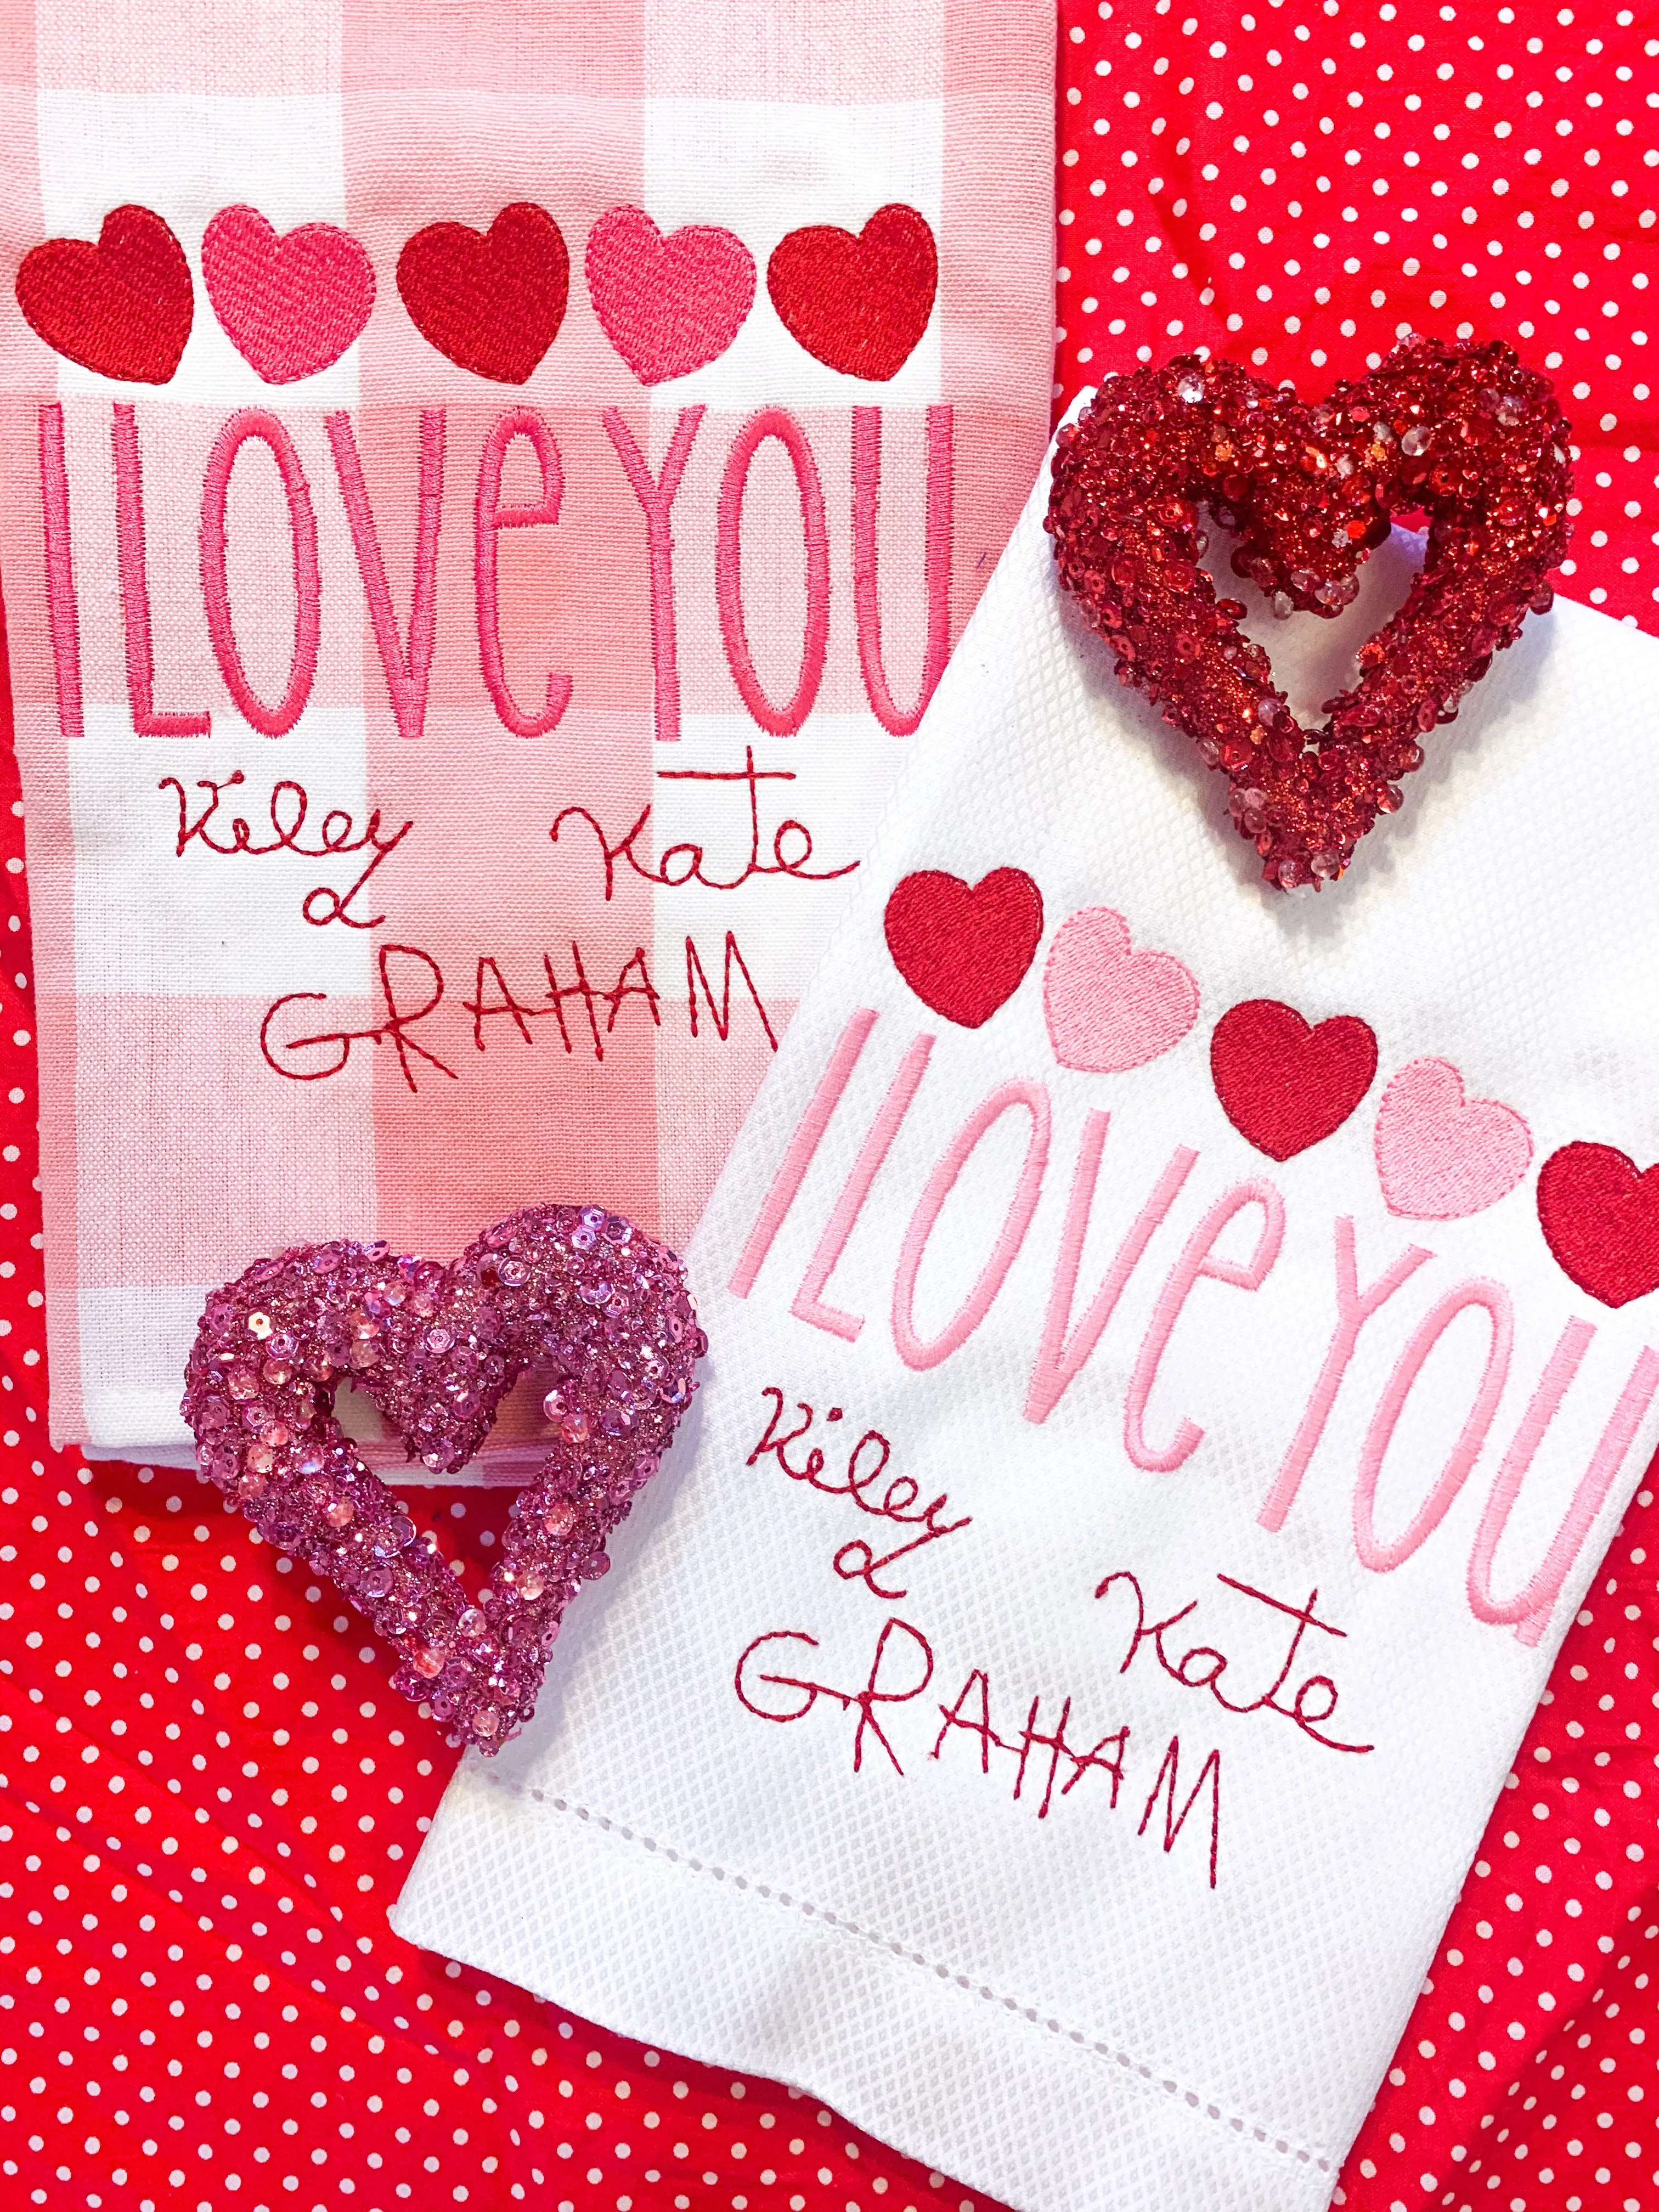 I LOVe YOU
Kiley Kate
&
GRAHAM
I LOVe YOU
Kiley
& Kate
GRAHAM